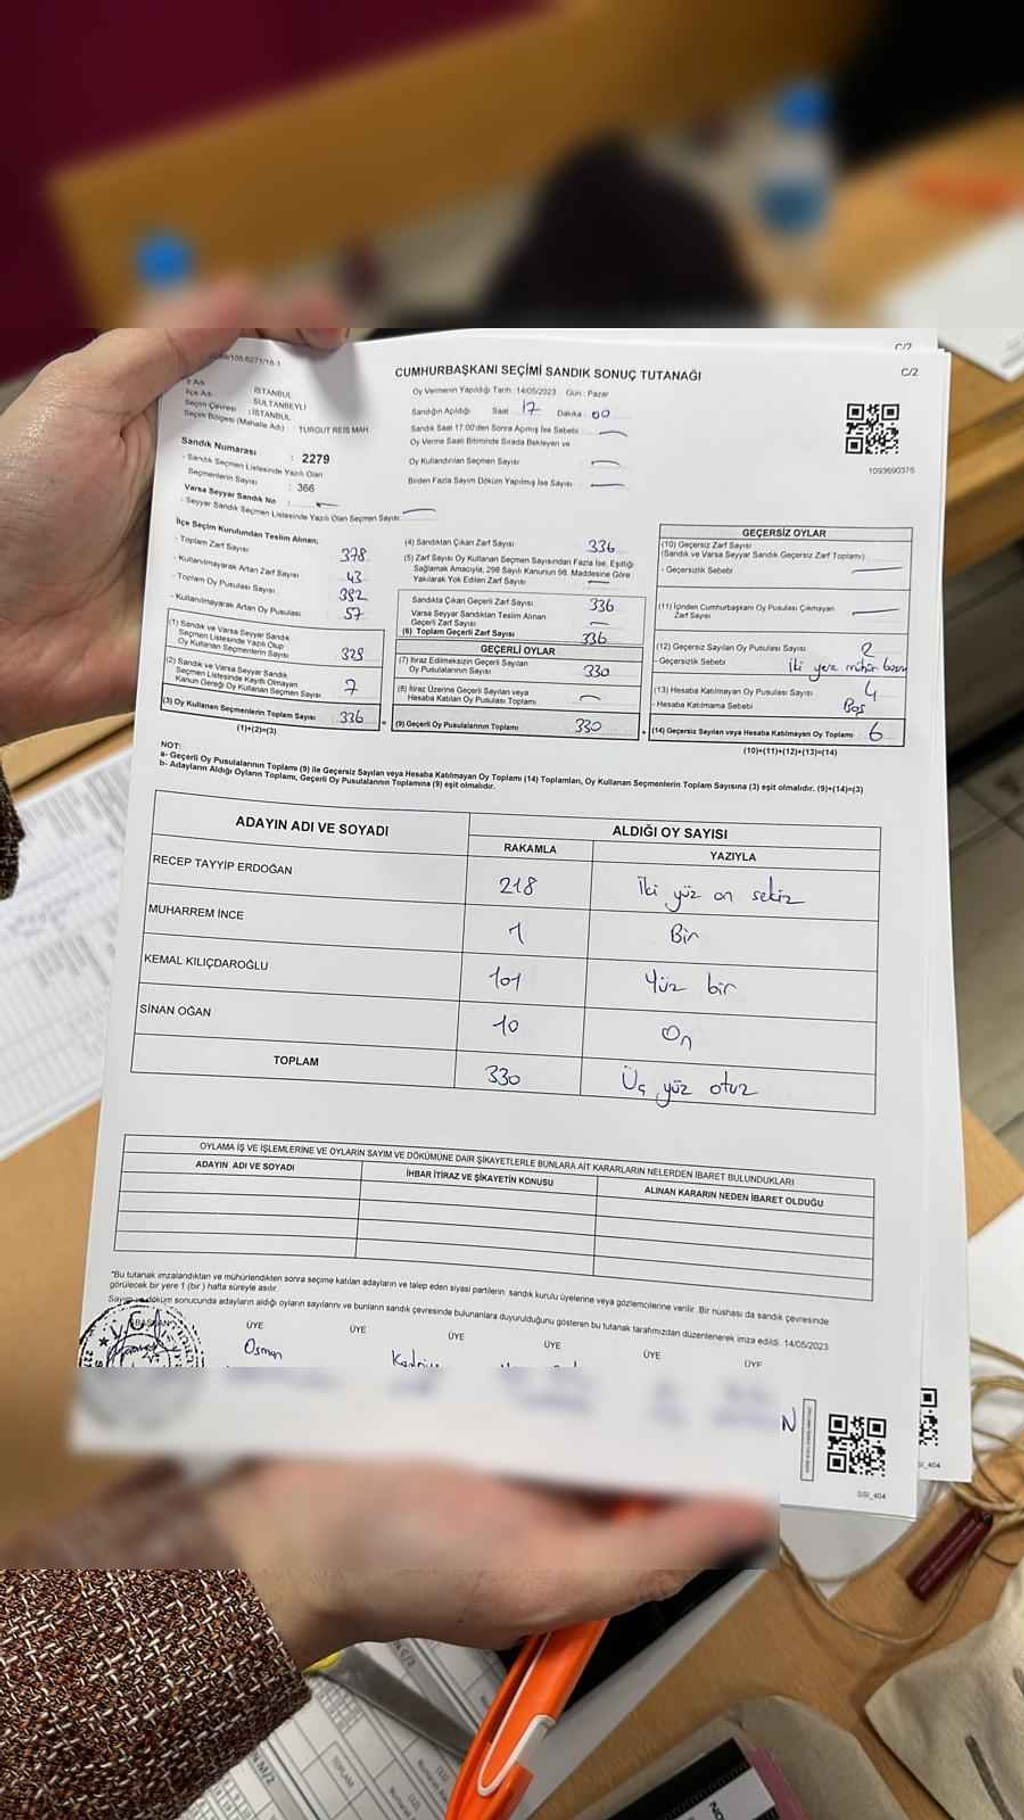 C/2
C/2
CUMHURBAŞKANI SEÇİMİ SANDIK SONUÇ TUTANAĞI
Oy Vermenin Yapıldığı Tarih :14/05/2023 Gün : Pazar
İl Adı : İSTANBUL
İlçe Adı : SULTANBEYLİ
Seçim Çevresi : İSTANBUL
Seçim Bölgesi (Mahalle Adı) : TURGUT REİS MAH.
Sandık Numarası : 2279
- Sandık Seçmen Listesinde Yazılı Olan
Seçmenlerin Sayısı : 366
Varsa Seyyar Sandık No :
- Seyyar Sandık Seçmen Listesinde Yazılı Olan Seçmen Sayısı:
Sandığın Açıldığı Saat : 17 Dakika : 00
Sandık Saat 17.00'den Sonra Açılmış İse Sebebi
Oy Verme Saati Bitiminde Sırada Bekleyen ve
Oy Kullandırılan Seçmen Sayısı
Birden Fazla Sayım Döküm Yapılmış İse Sayısı
1093690376
İlçe Seçim Kurulundan Teslim Alınan;
- Toplam Zarf Sayısı 378
- Kullanılmayarak Artan Zarf Sayısı 43
- Toplam Oy Pusulası Sayısı 382
- Kullanılmayarak Artan Oy Pusulası 57
(1) Sandık ve Varsa Seyyar Sandık
Seçmen Listesinde Yazılı Olup
Oy Kullanan Seçmenlerin Sayısı 329
(2) Sandık ve Varsa Seyyar Sandık
Seçmen Listesinde Kayıtlı Olmayan
Kanun Gereği Oy Kullanan Seçmen Sayısı 7
(3) Oy Kullanan Seçmenlerin Toplam Sayısı 336
(1)+(2)=(3)
(4) Sandıktan Çıkan Zarf Sayısı 336
(5) Zarf Sayısı Oy Kullanan Seçmen Sayısından Fazla İse, Eşitliği
Sağlamak Amacıyla, 298 Sayılı Kanunun 98. Maddesine Göre
Yakılarak Yok Edilen Zarf Sayısı
Sandıkta Çıkan Geçerli Zarf Sayısı 336
Varsa Seyyar Sandıktan Teslim Alınan
Geçerli Zarf Sayısı
(6) Toplam Geçerli Zarf Sayısı 336
GEÇERLİ OYLAR
(7) İtiraz Edilmeksizin Geçerli Sayılan
Oy Pusulalarının Sayısı 330
(8) İtiraz Üzerine Geçerli Sayılan veya
Hesaba Katılan Oy Pusulası Toplamı
(9) Geçerli Oy Pusulalarının Toplamı 330
GEÇERSİZ OYLAR
(10) Geçersiz Zarf Sayısı
(Sandık ve Varsa Seyyar Sandık Geçersiz Zarf Toplamı)
- Geçersizlik Sebebi
(11) İçinden Cumhurbaşkanı Oy Pusulası Çıkmayan
Zarf Sayısı
(12) Geçersiz Sayılan Oy Pusulası Sayısı 2
- Geçersizlik Sebebi İki yere mühür
(13) Hesaba Katılmayan Oy Pusulası Sayısı 4
- Hesaba Katılmama Sebebi Boş
(14) Geçersiz Sayılan veya Hesaba Katılmayan Oy Toplamı 6
(10)+(11)+(12)+(13)=(14)
NOT:
a- Geçerli Oy Pusulalarının Toplamı (9) ile Geçersiz Sayılan veya Hesaba Katılmayan Oy Toplamı (14) Toplamları, Oy Kullanan Seçmenlerin Toplam Sayısına (3) eşit olmalıdır. (9)+(14)=(3)
b- Adayların Aldığı Oyların Toplamı, Geçerli Oy Pusulalarının Toplamına (9) eşit olmalıdır.
ADAYIN ADI VE SOYADI
ALDIĞI OY SAYISI
RAKAMLA YAZIYLA
RECEP TAYYİP ERDOĞAN 218 İki yüz on sekiz
MUHARREM İNCE 1 Bir
KEMAL KILIÇDAROĞLU 101 Yüz bir
SİNAN OĞAN 10 On
TOPLAM 330 Üç yüz otuz
OYLAMA İŞ VE İŞLEMLERİNE VE OYLARIN SAYIM VE DÖKÜMÜNE DAİR ŞİKAYETLERLE BUNLARA AİT KARARLARIN NELERDEN İBARET BULUNDUKLARI
ADAYIN ADI VE SOYADI İHBAR İTİRAZ VE ŞİKAYETİN KONUSU ALINAN KARARIN NEDEN İBARET OLDUĞU
"Bu tutanak imzalandıktan ve mühürlendikten sonra seçime katılan adayların ve talep eden siyasi partilerin sandık kurulu üyelerine veya gözlemcilerine verilir. Bir nüshası da sandık çevresinde
görülecek bir yere 1 (bir) hafta süreyle asılır.
Sayım ve döküm sonucunda adayların aldığı oyların sayılarını ve bunların sandık çevresinde bulunanlara duyurulduğunu gösteren bu tutanak tarafımızdan düzenlenerek imza edildi. 14/05/2023
BAŞKAN ÜYE ÜYE ÜYE ÜYE ÜYE ÜYE
Osman
N
SSI_404